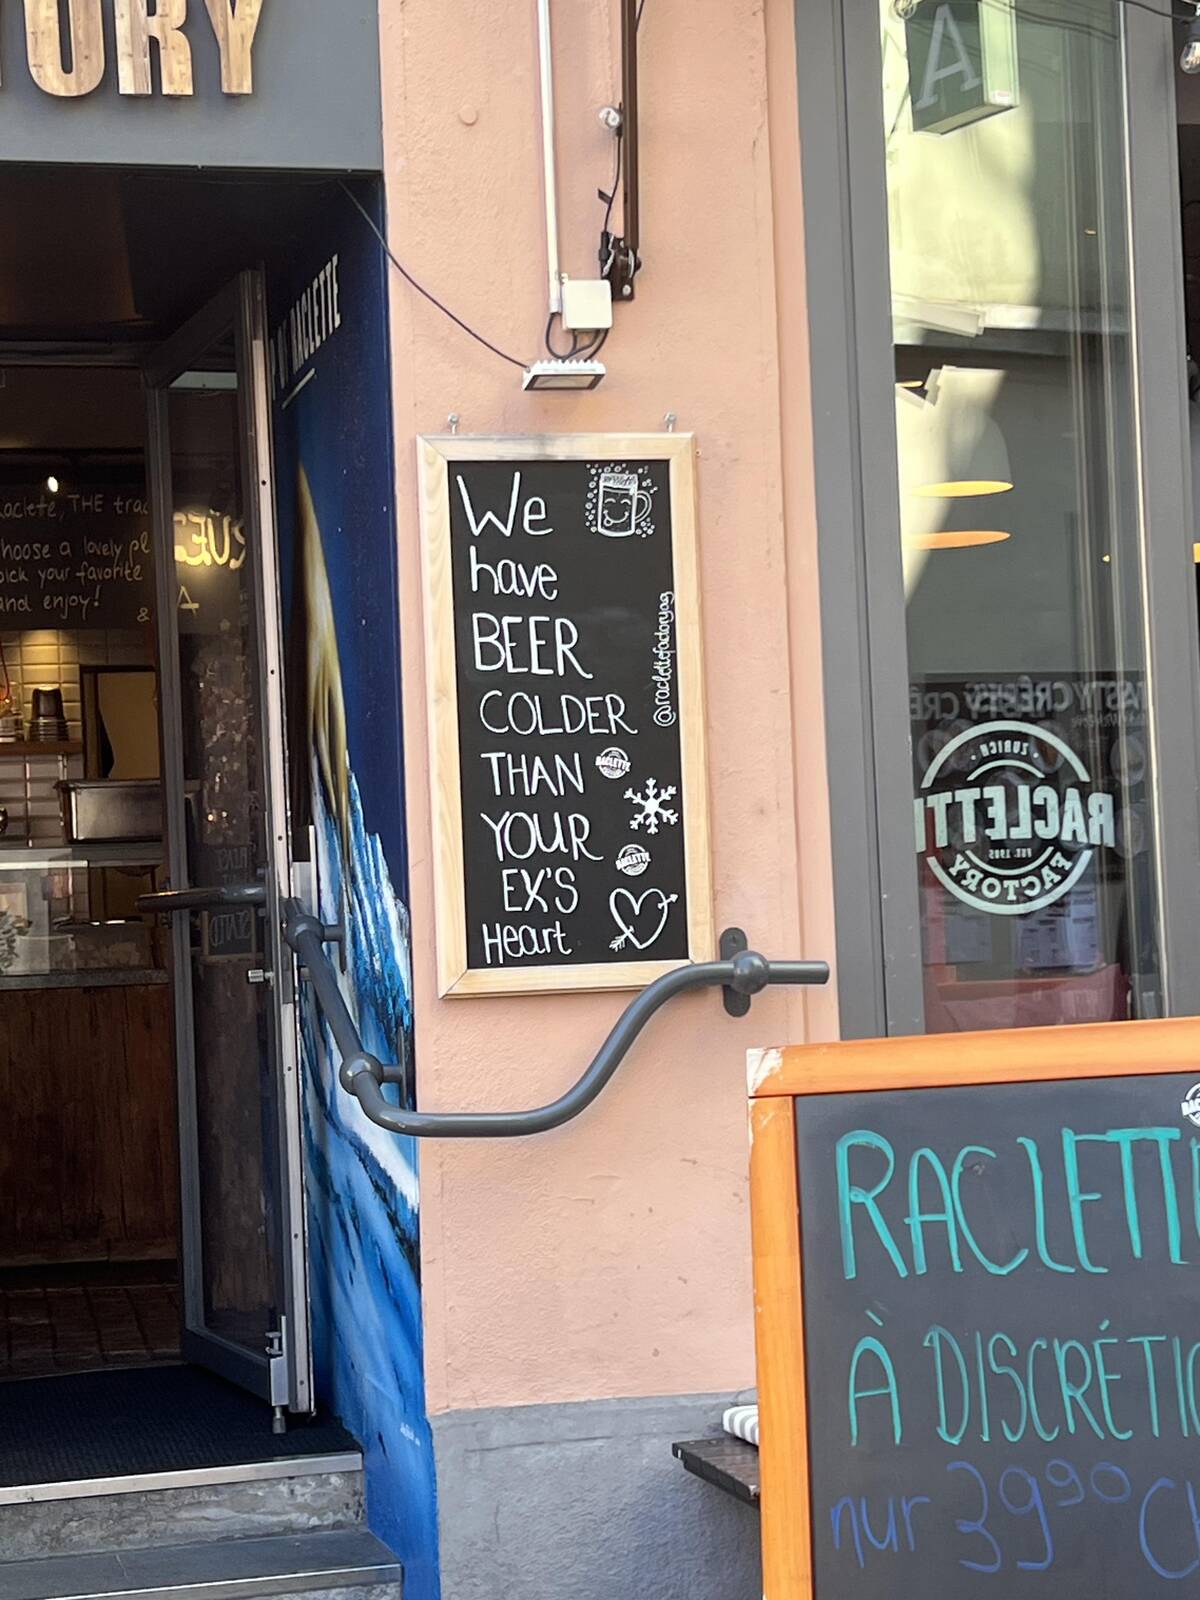 TORY
A
RACLETTE
aclette, THE trad
hoose a lovely pl
pick your favorite
and enjoy!
&
We
have
BEER
COLDER
THAN
YOUR
EX'S
Heart
@raclettefactoryag
RACLETTE
RACLETTE
ZURICH
RACLETT
EST. 1985
FACTORY
RACLETTE
À DISCRÉTIO
nur 39⁹⁰ CH